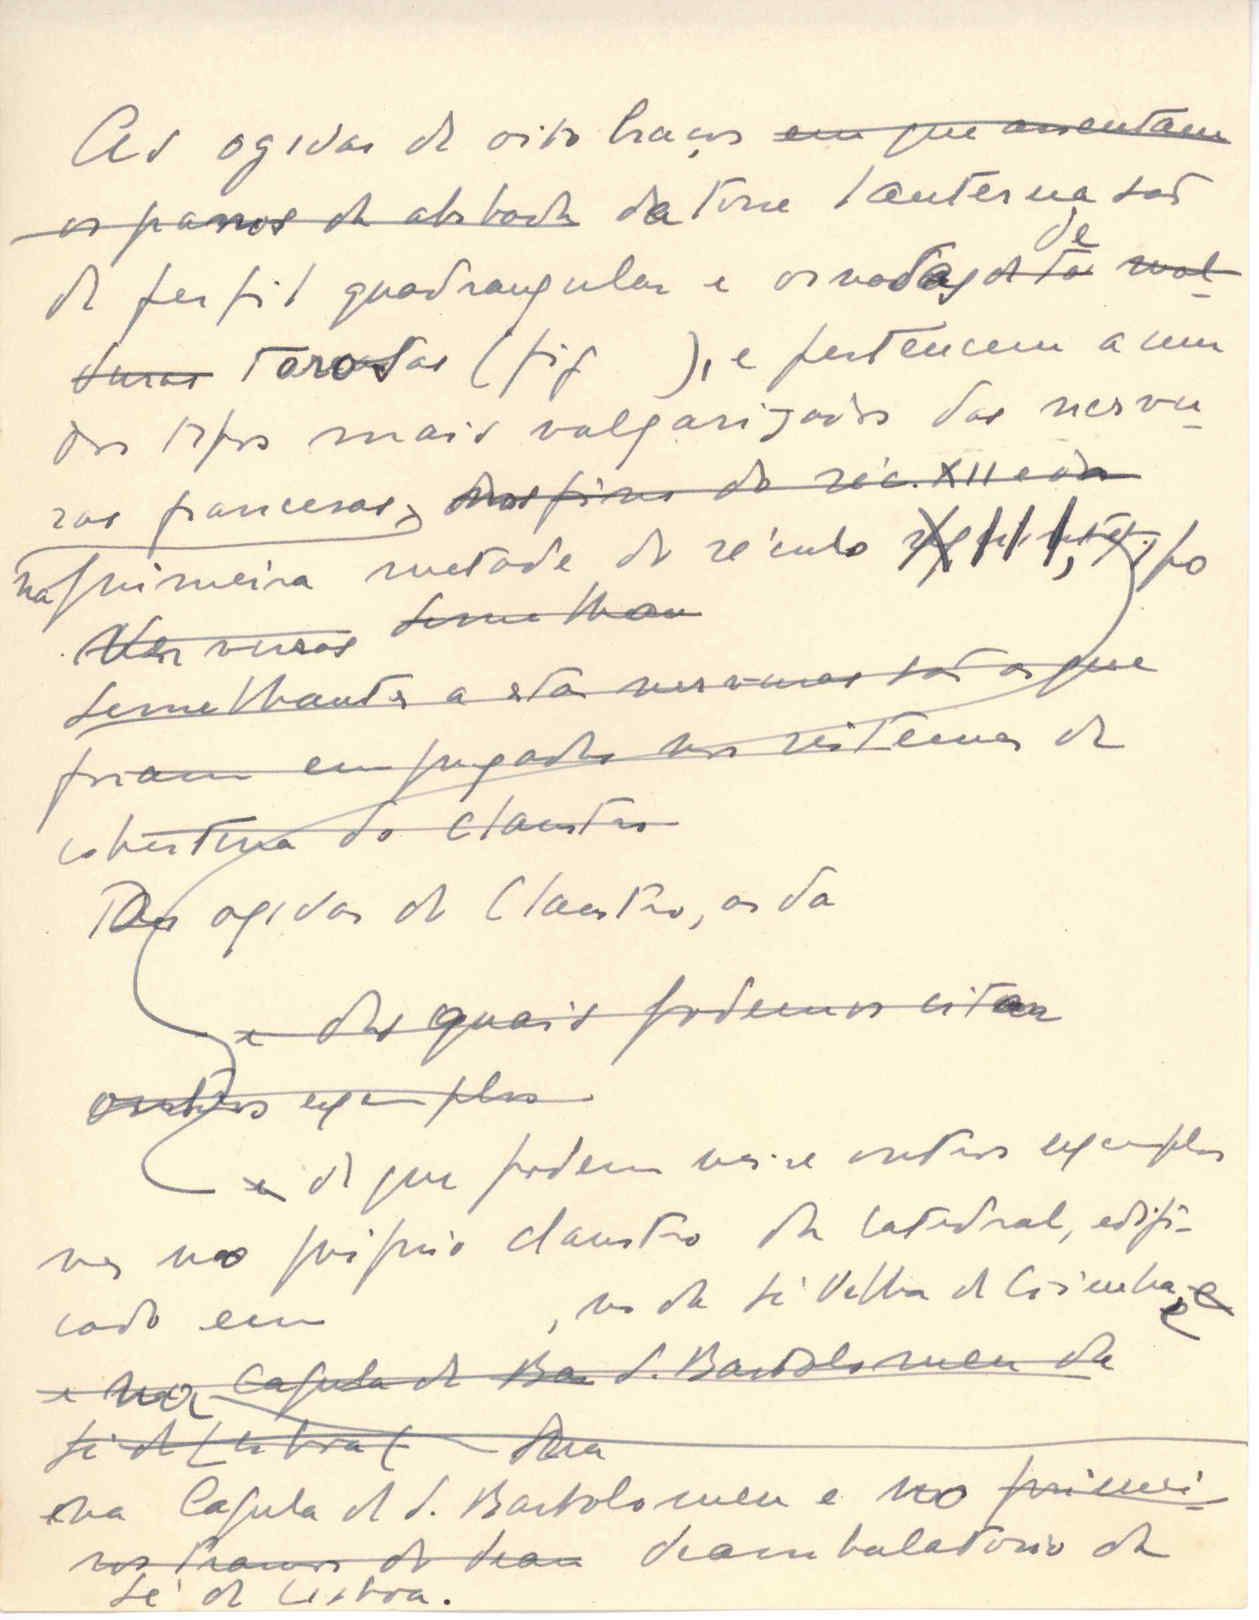 As ogivas de oito braços em que assentam
os panos da abobada da torre lanterna são
de
de perfil quadrangular e ornadas de mol-
duras toradas (fig ), e pertencem a um
dos tipos mais vulgarizados das nervu-
ras francesas, dos fins do séc. XII e da
na primeira metade do século XIII, tipo
Nervuras semelhan
semelhantes a estas nervuras são as que
foram empregadas nos sistemas de
cobertura do claustro
Das ogivas do Claustro, as da
e das quais podemos citar
outros exemplos
e de que podem ver-se outros exemplos
no próprio claustro da catedral, edifi-
cado em , no da Sé Velha de Coimbra, e
e na Capela de Ba S. Bartolomeu da
Sé de Lisboa
na Capela de S. Bartolomeu e no primei-
ros tramos do deambulatório da
Sé de Lisboa.